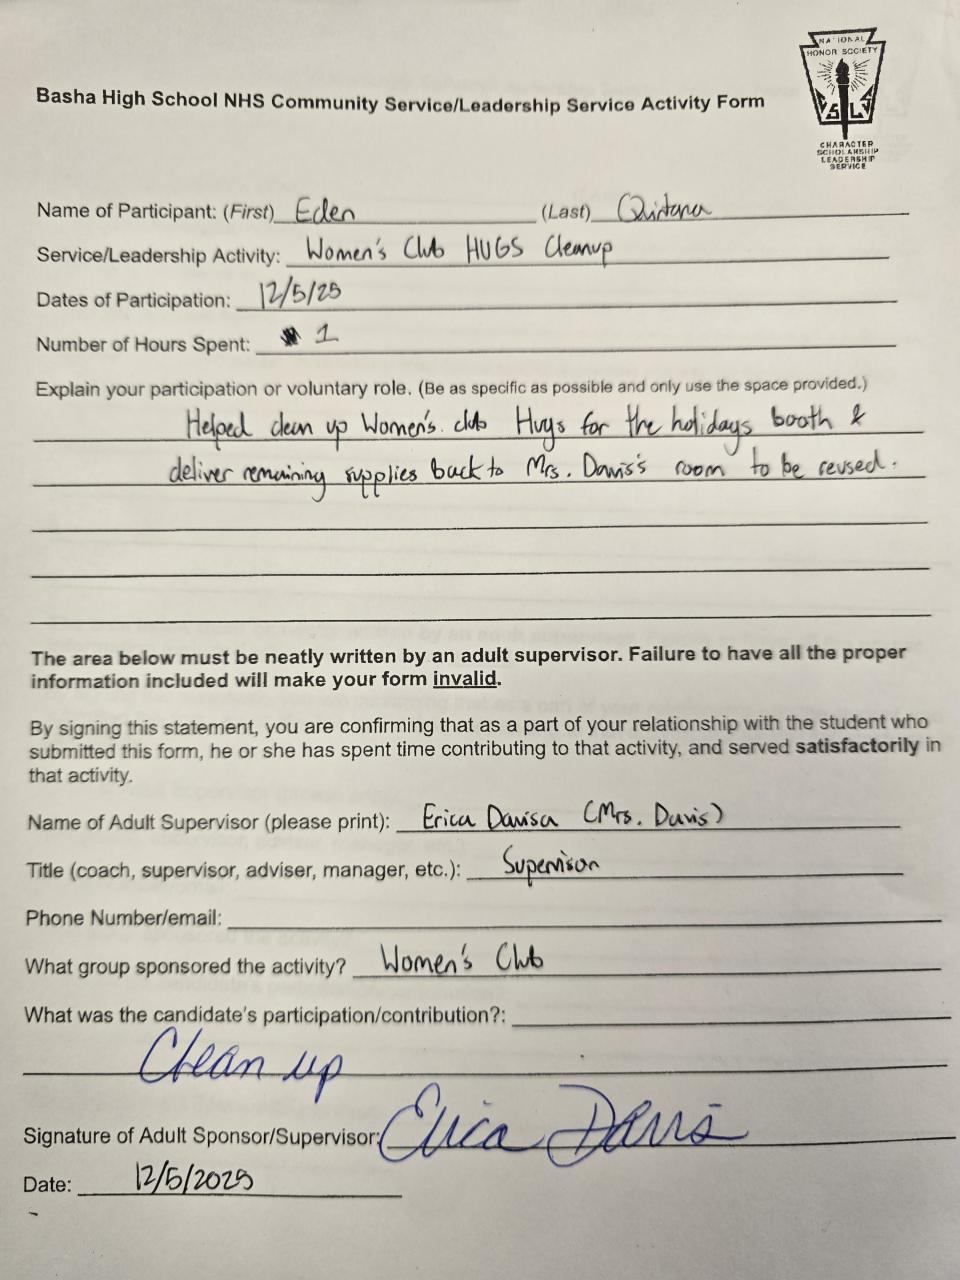 NATIONAL
HONOR SOCIETY
S L S
CHARACTER
SCHOLARSHIP
LEADERSHIP
SERVICE
Basha High School NHS Community Service/Leadership Service Activity Form
Name of Participant: (First) Eden (Last) Quintana
Service/Leadership Activity: Women's Club HUGS Cleanup
Dates of Participation: 12/5/25
Number of Hours Spent: 1
Explain your participation or voluntary role. (Be as specific as possible and only use the space provided.)
Helped clean up Women's club Hugs for the holidays booth &
deliver remaining supplies back to Mrs. Davis's room to be reused.
The area below must be neatly written by an adult supervisor. Failure to have all the proper
information included will make your form invalid.
By signing this statement, you are confirming that as a part of your relationship with the student who
submitted this form, he or she has spent time contributing to that activity, and served satisfactorily in
that activity.
Name of Adult Supervisor (please print): Erica Davisa (Mrs. Davis)
Title (coach, supervisor, adviser, manager, etc.): Supervisor
Phone Number/email:
What group sponsored the activity? Women's Club
What was the candidate's participation/contribution?:
Clean up
Signature of Adult Sponsor/Supervisor: Erica Davis
Date: 12/5/2025